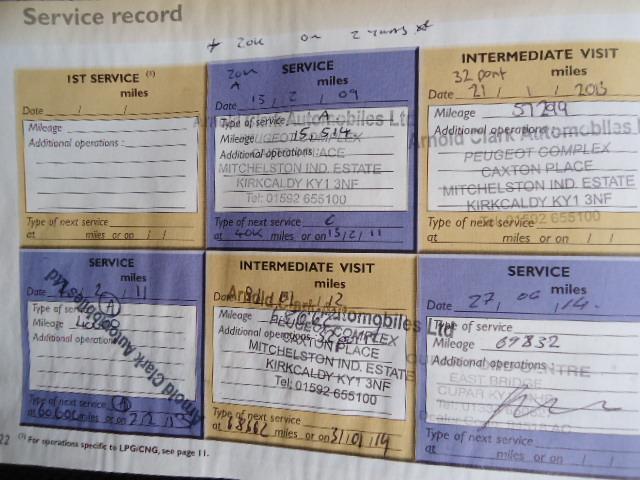 Service record
* 20K or 2 years *
1ST SERVICE (1)
miles
Date / /
Mileage
Additional operations :
Type of next service
at miles or on / /
20K
A
SERVICE
miles
Date 13 / 2 / 09
Type of service A
Mileage 15,514
Additional operations :
Arnold Clark Automobiles Ltd
PEUGEOT COMPLEX
CAXTON PLACE
MITCHELSTON IND. ESTATE
KIRKCALDY KY1 3NF
Tel: 01592 655100
Type of next service C
at 40K miles or on 13/2/11
INTERMEDIATE VISIT
32 point miles
Date 21 / 1 / 2013
Mileage 57299
Additional operations
Arnold Clark Automobiles Ltd
PEUGEOT COMPLEX
CAXTON PLACE
MITCHELSTON IND. ESTATE
KIRKCALDY KY1 3NF
Tel: 01592 655100
Type of next service
at miles or on / /
SERVICE
miles
Date 2 11
Type of service A
Mileage
Additional operations
Arnold Clark Automobiles Ltd
Type of next service A
at miles or on
INTERMEDIATE VISIT
miles
Date
Mileage
Additional operations
Arnold Clark Automobiles Ltd
PEUGEOT COMPLEX
CAXTON PLACE
MITCHELSTON IND. ESTATE
KIRKCALDY KY1 3NF
Tel: 01592 655100
Type of next service
at 68662 miles or on 31/01/14
SERVICE
miles
Date 27, 06, 14.
Type of service
Mileage 69832
Additional operations
CENTRE
EAST BRIDGE
CUPAR
22
(1) For operations specific to LPG/CNG, see page 11.